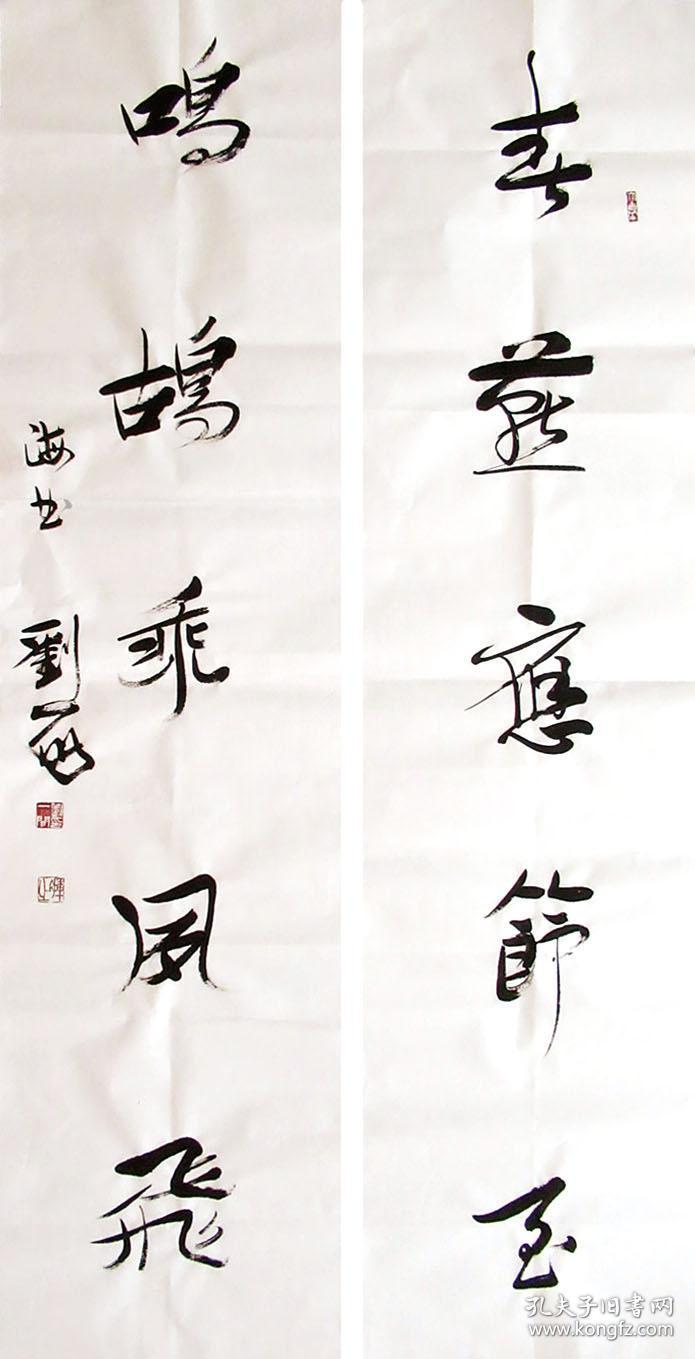 春燕應節至
鳴鴣乘風飛
海书 劉
孔夫子旧書网
www.kongfz.com